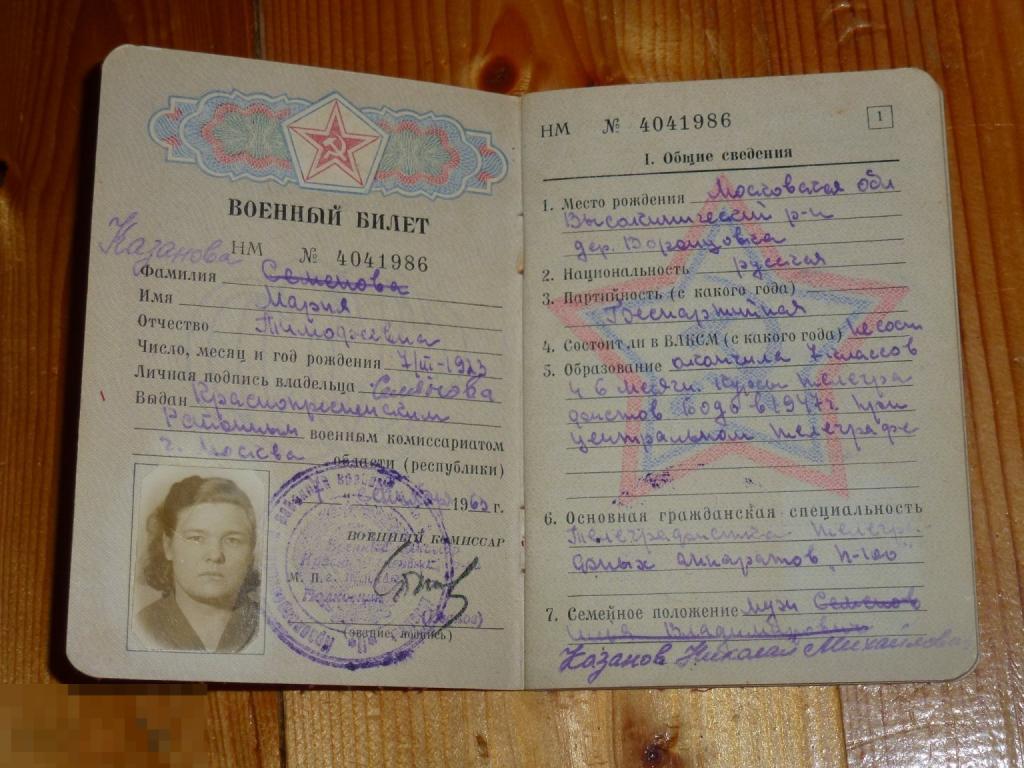 ВОЕННЫЙ БИЛЕТ
Казанова
НМ № 4041986
Фамилия Семенова
Имя Мария
Отчество Тимофеевна
Число, месяц и год рождения 7/III-1923
Личная подпись владельца Семёнова
Выдан Краснопресненским
Районным военным комиссариатом
г. Москва области (республики)
1965 г.
ВОЕННЫЙ КОМИССАР
М. П.
(звание, подпись)
НМ № 4041986
1
I. Общие сведения
1. Место рождения Московская обл
р-н
дер.
2. Национальность русская
3. Партийность (с какого года)
Беспартийная
4. Состоит ли в ВЛКСМ (с какого года) не сост
5. Образование окончила 7 классов
и 6 месячн. курсы телегра
фистов Бодо в 1947г. при
центральном телеграфе
6. Основная гражданская специальность
Телеграфистка телегра-
фных аппаратов
7. Семейное положение муж Семенов
Владимирович
Казанов Николай Михайлович